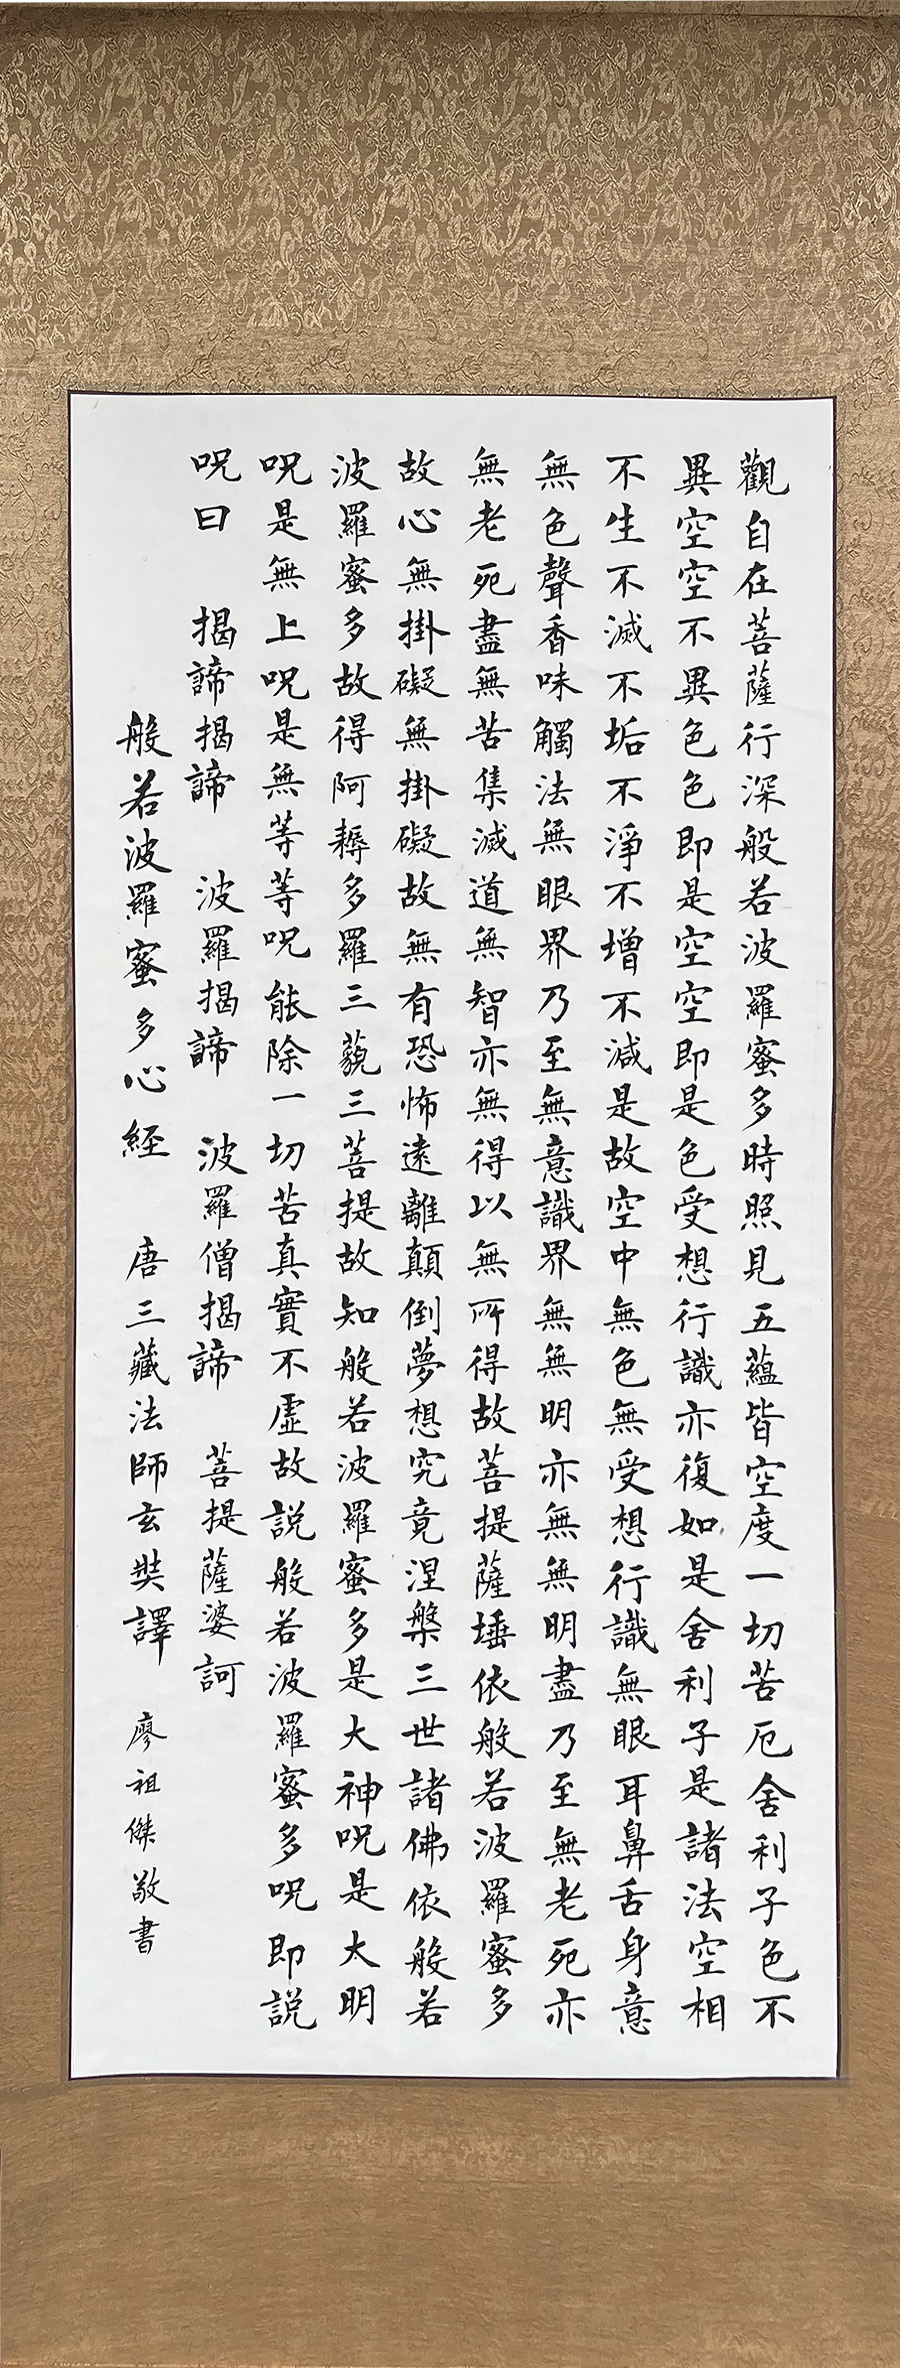 觀自在菩薩行深般若波羅蜜多時照見五蘊皆空度一切苦厄舍利子色不
異空空不異色色即是空空即是色受想行識亦復如是舍利子是諸法空相
不生不滅不垢不淨不增不減是故空中無色無受想行識無眼耳鼻舌身意
無色聲香味觸法無眼界乃至無意識界無無明亦無無明盡乃至無老死亦
無老死盡無苦集滅道無智亦無得以無所得故菩提薩埵依般若波羅蜜多
故心無掛礙無掛礙故無有恐怖遠離顛倒夢想究竟涅槃三世諸佛依般若
波羅蜜多故得阿耨多羅三藐三菩提故知般若波羅蜜多是大神呪是大明
呪是無上呪是無等等呪能除一切苦真實不虛故説般若波羅蜜多呪即説
呪曰 揭諦揭諦 波羅揭諦 波羅僧揭諦 菩提薩婆訶
般若波羅蜜多心經 唐三藏法師玄奘譯 廖祖傑敬書